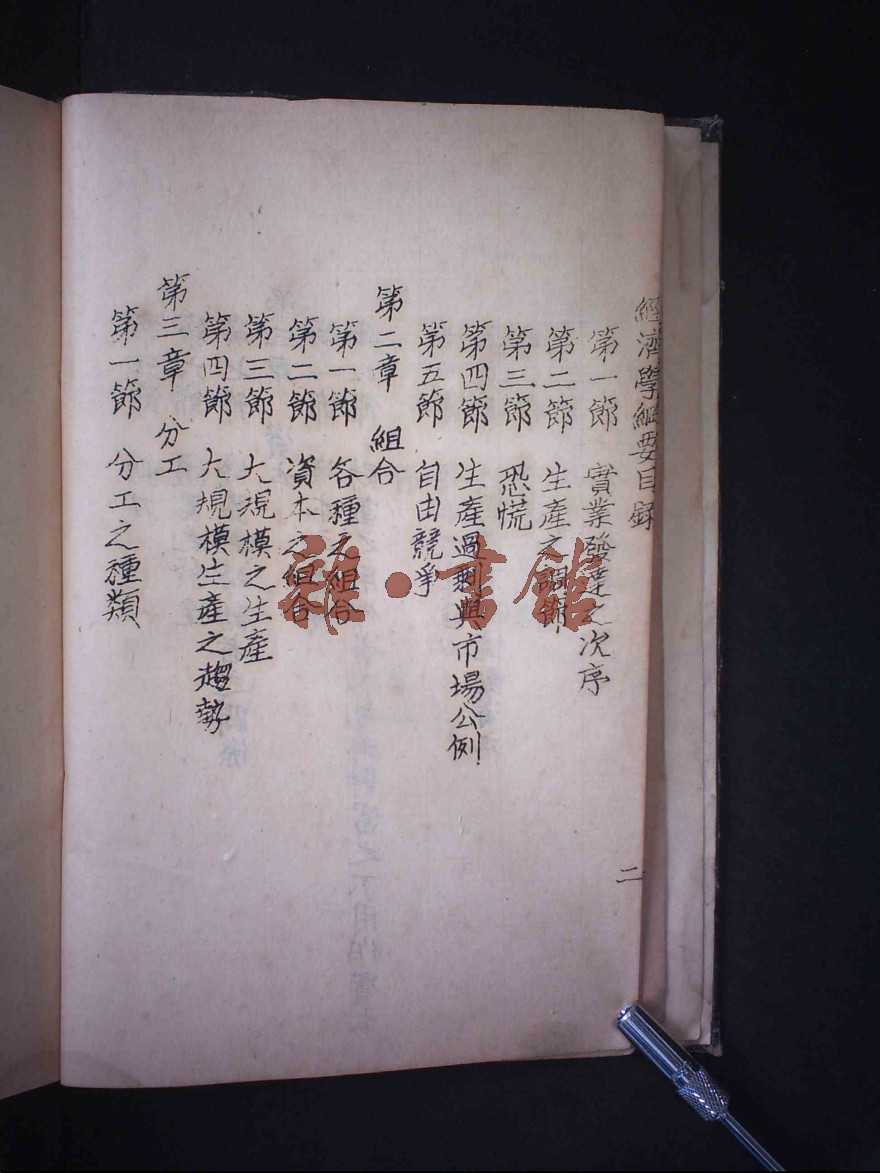 經濟學綱要目錄
第一節 實業發達之次序
第二節 生產之調節
第三節 恐慌
第四節 生產過剩與市場公例
第五節 自由競爭
第二章 組合
第一節 各種之組合
第二節 資本之組合
第三節 大規模之生產
第四節 大規模生產之趨勢
第三章 分工
第一節 分工之種類
二
雜·書館